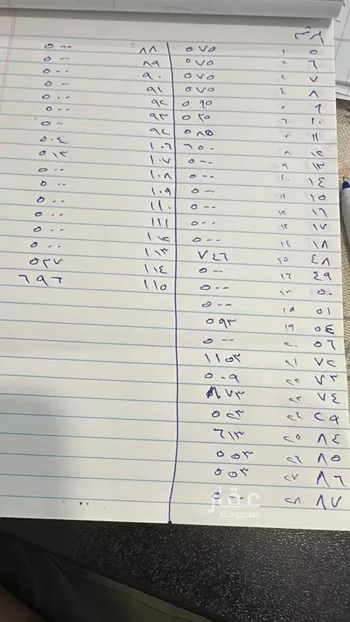 ٥ ١ ٥٧٥
٦ ٢ ٥٧٥
٧ ٣ ٥٧٥
٨ ٤ ٥٧٥
٩ ٥ ٥٩٥
١٠ ٦ ٥٢٥
١١ ٧ ٥٨٥
١٢ ٨ ٦٥٠
١٣ ٩ ٥٠٠
١٤ ١٠ ٥٠٠
١٥ ١١ ٥٠٠
١٦ ١٢ ٥٠٠
١٧ ١٣ ٥٠٠
١٨ ١٤ ٥٠٠
٤٨ ١٥ ٧٤٦
٤٩ ١٦ ٥٠٠
٥٠ ١٧ ٥٠٠
٥١ ١٨ ٥٠٠
٥٤ ١٩ ٥٩٣
٥٦ ٢٠ ٥٠٠
٧٢ ٢١ ١١٥٣
٧٣ ٢٢ ٥٠٩
٧٤ ٢٣ ٨٧٣
٢٩ ٢٤ ٥٢٣
٨٤ ٢٥ ٦١٣
٨٥ ٢٦ ٥٥٣
٨٦ ٢٧ ٥٥٣
٨٧ ٢٨
٨٨ ٥٠٠
٨٩ ٥٠٠
٩٠ ٥٠٠
٩١ ٥٠٠
٩٢ ٥٠٠
٩٣ ٥٠٠
٩٤ ٥٠٠
١٠٦ ٥٠٤
١٠٧ ٥١٣
١٠٨ ٥٠٠
١٠٩ ٥٠٠
١١٠ ٥٠٠
١١١ ٥٠٠
١١٢ ٥٠٠
١١٣ ٥٠٠
١١٤ ٥٢٧
١١٥ ٦٩٦